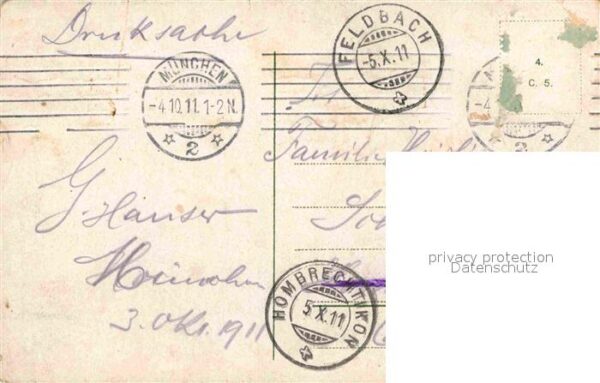 Drucksache
MÜNCHEN
-4.10.11. 1-2 N.
2
FELDBACH
-5.X.11
4.
C. 5.
-4
2
Familie
G. Hauser
München
3. Okt. 1911
HOMBRECHTIKON
5.X.11
privacy protection
Datenschutz